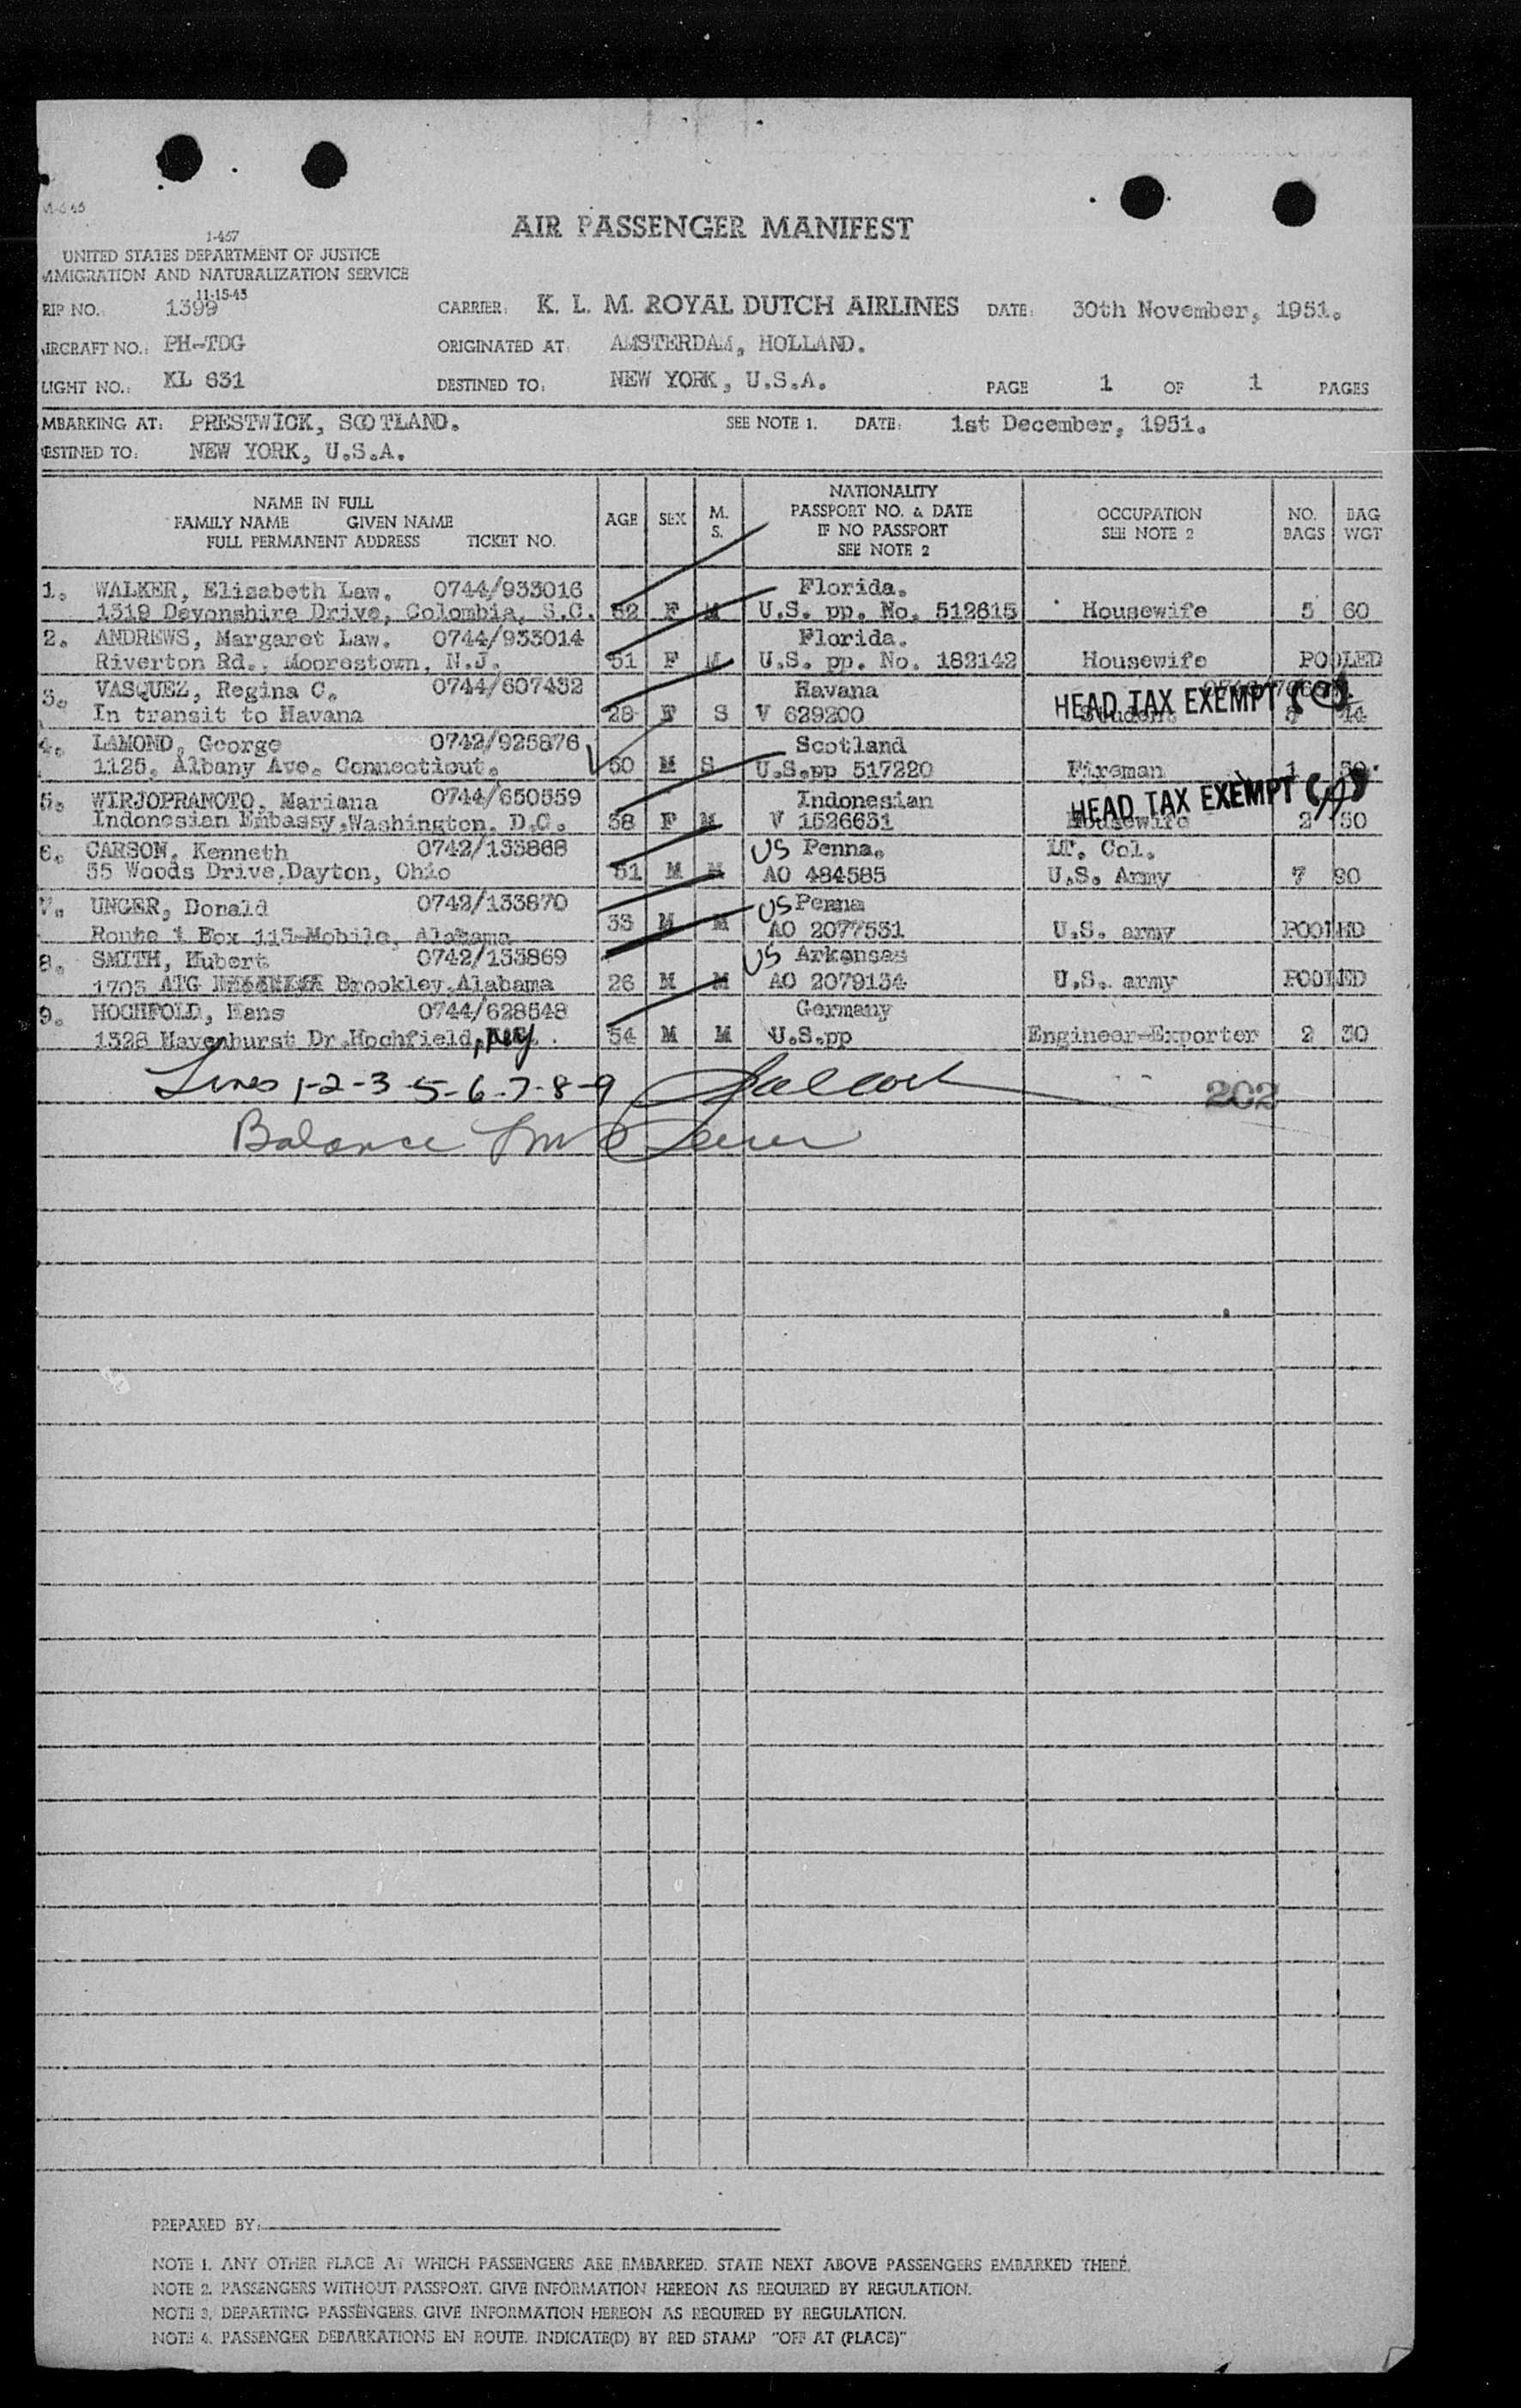 AIR PASSENGER MANIFEST
1-467
UNITED STATES DEPARTMENT OF JUSTICE
MMIGRATION AND NATURALIZATION SERVICE
11-15-45
RIP NO. 1399 CARRIER: K. L. M. ROYAL DUTCH AIRLINES DATE: 30th November, 1951.
IRCRAFT NO.: PH-TDG ORIGINATED AT: AMSTERDAM, HOLLAND.
LIGHT NO.: KL 631 DESTINED TO: NEW YORK, U.S.A. PAGE 1 OF 1 PAGES
MBARKING AT: PRESTWICK, SCOTLAND. SEE NOTE 1. DATE: 1st December, 1951.
ESTINED TO: NEW YORK, U.S.A.
NAME IN FULL
FAMILY NAME GIVEN NAME
FULL PERMANENT ADDRESS TICKET NO.
AGE
SEX
M.
S.
NATIONALITY
PASSPORT NO. & DATE
IF NO PASSPORT
SEE NOTE 2
OCCUPATION
SEE NOTE 2
NO.
BAGS
BAG
WGT
1. WALKER, Elizabeth Law. 0744/933016 Florida.
1319 Devonshire Drive, Colombia, S.C. 52 F M U.S. pp. No. 512615 Housewife 5 60
2. ANDREWS, Margaret Law. 0744/933014 Florida.
Riverton Rd., Moorestown, N.J. 51 F M U.S. pp. No. 182142 Housewife POOLED
3. VASQUEZ, Regina C. 0744/607432 Havana HEAD TAX EXEMPT
In transit to Havana 28 F S V 629200 Student 44
4. LAMOND, George 0742/925876 Scotland
1125, Albany Ave. Connecticut. 50 M S U.S.pp 517220 Fireman 1 30
5. WIRJOPRANOTO, Mariana 0744/650559 Indonesian HEAD TAX EXEMPT
Indonesian Embassy, Washington, D.C. 38 F M V 1526631 Housewife 2 30
6. CARSON, Kenneth 0742/133868 US Penna. LT. Col.
55 Woods Drive, Dayton, Ohio 51 M M AO 484585 U.S. Army 7 90
7. UNGER, Donald 0742/133870 US Penna
Route 1 Box 115-Mobile, Alabama 33 M M AO 2077551 U.S. army POOLED
8. SMITH, Hubert 0742/133869 US Arkansas
1703 ATG Brookley, Alabama 26 M M AO 2079134 U.S. army POOLED
9. HOCHFOLD, Hans 0744/628548 Germany
1328 Havenhurst Dr. Hochfield, 54 M M U.S.pp Engineer-Exporter 2 30
Lines 1-2-3-5-6-7-8-9
202
Balance
PREPARED BY:
NOTE 1. ANY OTHER PLACE AT WHICH PASSENGERS ARE EMBARKED. STATE NEXT ABOVE PASSENGERS EMBARKED THERE.
NOTE 2. PASSENGERS WITHOUT PASSPORT. GIVE INFORMATION HEREON AS REQUIRED BY REGULATION.
NOTE 3. DEPARTING PASSENGERS. GIVE INFORMATION HEREON AS REQUIRED BY REGULATION.
NOTE 4. PASSENGER DEBARKATIONS EN ROUTE. INDICATE(D) BY RED STAMP "OFF AT (PLACE)"